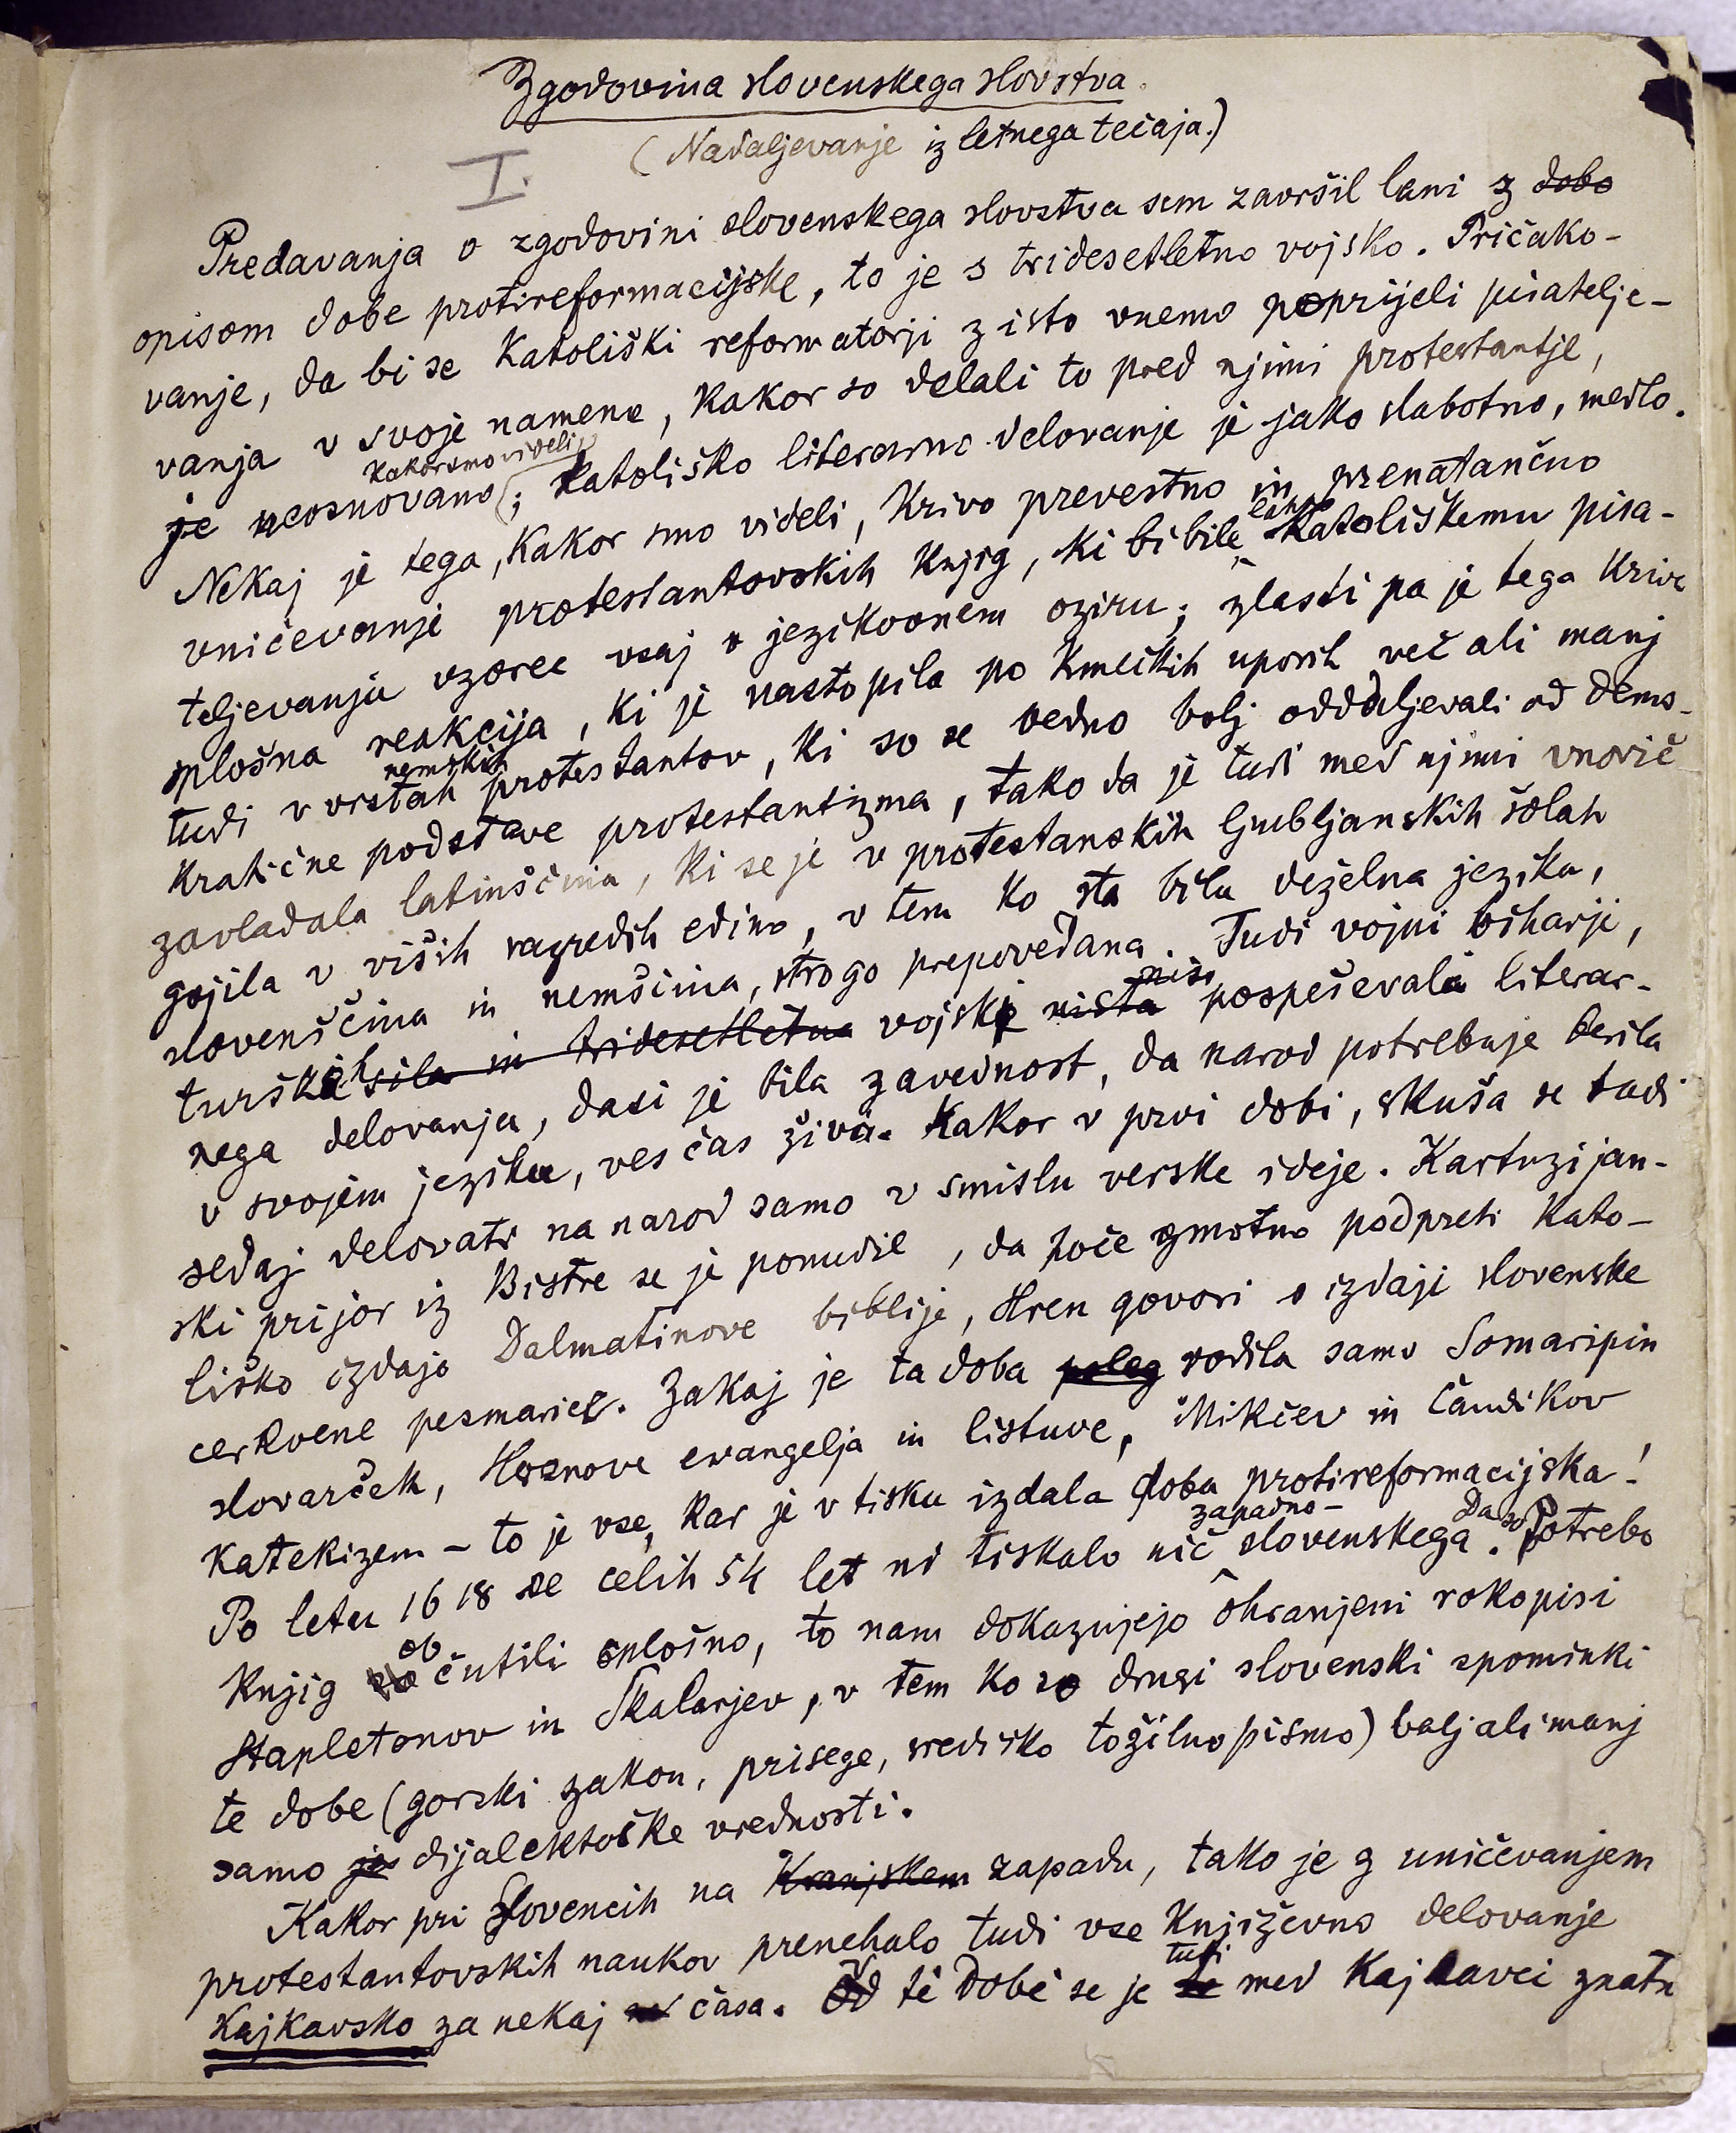 Zgodovina slovenskega slovstva.
(Nadaljevanje iz letnega tečaja.)
I.
Predavanja o zgodovini slovenskega slovstva sem završil lani z dobo
opisom dobe protireformacijske, to je s tridesetletno vojsko. Pričako-
vanje, da bi se katoliški reformatorji z isto vnemo poprijeli pisatelje-
vanja v svoje namene, kakor so delali to pred njimi protestantje,
kakor smo videli
je neosnovano; katoliško literarno delovanje je jako slabotno, medlo.
Nekaj je tega, kakor smo videli, krivo prevestno in prenatančno
uničevanje protestantovskih knjig, ki bi bile lahko katoliškemu pisa-
teljevanju vzorec vsaj v jezikovnem oziru; zlasti pa je tega kriva
splošna reakcija, ki je nastopila po kmečkih uporih več ali manj
tudi v vrstah nemških protestantov, ki so se vedno bolj oddaljevali od demo-
kratične podstave protestantizma, tako da je tudi med njimi vnovič
zavladala latinščina, ki se je v protestanskih ljubljanskih šolah
gojila v viših razredih edino, v tem ko sta bila deželna jezika,
slovenščina in nemščina, strogo prepovedana. Tudi vojni viharji,
turških sila in tridesetletna vojski nista niso pospeševala literar-
nega delovanja, dasi je bila zavednost, da narod potrebuje berila
v svojem jeziku, ves čas živa. Kakor v prvi dobi, skuša se tudi
sedaj delovati na narod samo v smislu verske ideje. Kartuzijan-
ski prijor iz Bistre se je ponudil, da hoče gmotno podpreti kato-
liško izdajo Dalmatinove biblije, Hren govori o izdaji slovenske
cerkvene pesmarice. Zakaj je ta doba poleg rodila samo Somaripin
slovarček, Hrenove evangelja in listuve, Mikčev in Čandikov
katekizem – to je vse, kar je v tisku izdala doba protireformacijska!
Po letu 1618 se celih 54 let ni tiskalo nič zapadno-slovenskega. Da so potrebo
knjig so občutili splošno, to nam dokazujejo ohranjeni rokopisi
Stapletonov in Skalarjev, v tem ko so drugi slovenski spominki
te dobe (gorski zakon, prisege, središko tožilno pismo) bolj ali manj
samo je dijalektoške vrednosti.
Kakor pri Slovencih na Kranjskem zapadu, tako je z uničevanjem
protestantovskih naukov prenehalo tudi vse književno delovanje
kajkavsko za nekaj časa. V té dobé se je tudi med Kajkavci znatn